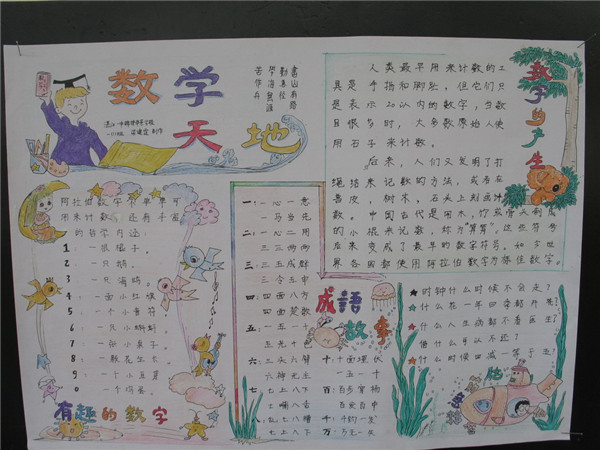 数学
天地
書山有路
勤为径
学海無涯
苦作舟
数字的产生
人类最早用来计数的工
具是手指和脚趾，但它们只
是表示20以内的数字，当数
目很多时，大多数原始人使
用石子来计数。
后来，人们又发明了打
绳结来记数的方法，或者在
兽皮，树木，石头上刻画计
数。中国古代是用木，竹或骨头制成
的小棍来记数，称为"算筹"，这些符号
后来变成了最早的数字符号，如今世
界各国都使用阿拉伯数字为标准数字。
阿拉伯数字不单单可
用来计数，还有丰富
的哲学内涵：
1 一根棍子。
2 一只鹅。
3 一只海鸥。
4 一面小红旗
5 一个小音符
6 一只小蝌蚪
7 一把小凳子。
8 一颗花生米
9 一个小豆芽
0 一个鸡蛋。
有趣的数字
成語
故事
一：一心一意
一马当先
二：一心二用
一石二鸟
三：三三两两
三五成群
四：四面八方
五：五光十色
一五一十
六：三头六臂
六神无主
七：七上八下
七嘴八舌
八：
七上八下
十：十面埋伏
一五一十
百：百步穿杨
百发百中
千：千钧一发
万：万无一失
★时钟什么时候不会走？
★什么花一年四季都开着？
★什么人生病都不看医生？
★什么时候四减一等于五？